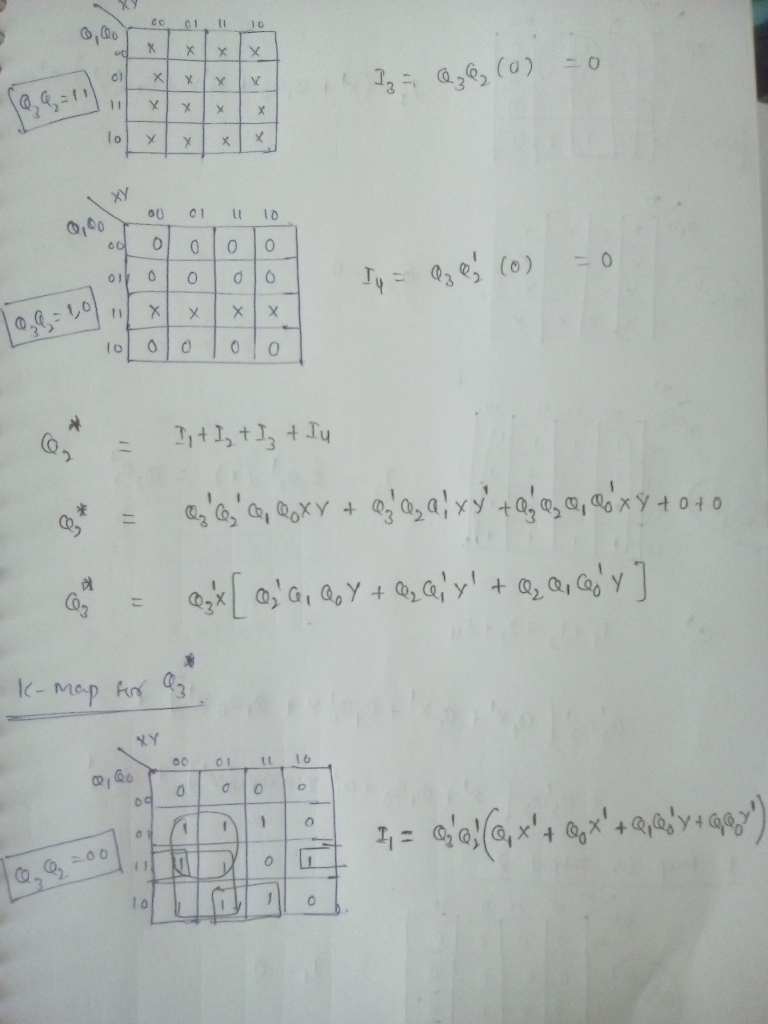 XY
00 01 11 10
Q₁Q₀
00 x x x x
01 x x x x
11 x x x x
10 x x x x
Q₃Q₂=11
I₃ = Q₃Q₂(0) = 0
XY
00 01 11 10
Q₁Q₀
00 0 0 0 0
01 0 0 0 0
11 x x x x
10 0 0 0 0
Q₃Q₂=1,0
I₄ = Q₃Q₂' (0) = 0
Q₂* = I₁+I₂+I₃+I₄
Q₂* = Q₃'Q₂'Q₁Q₀XY + Q₃'Q₂Q₁'XY' + Q₃'Q₂Q₁Q₀'XY + 0+0
Q₃* = Q₃'X[ Q₂'Q₁Q₀Y + Q₂Q₁'Y' + Q₂Q₁Q₀'Y ]
K-map for Q₃*
XY
00 01 11 10
Q₁Q₀
00 0 0 0 0
01 1 1 1 0
11 1 1 0 1
10 1 1 1 0
Q₃Q₂=00
I₁ = Q₃'Q₂'(Q₁X' + Q₀X' + Q₁Q₀'Y + Q₁Q₀Y')